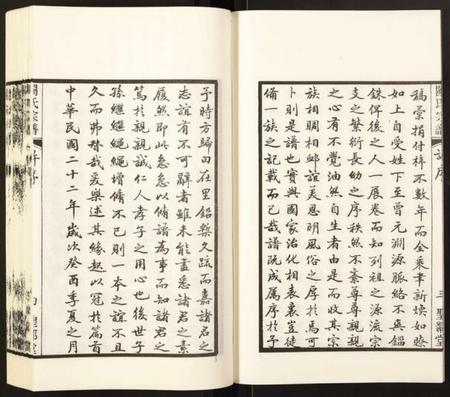 稿彙捐付梓不數年而全乘聿新煥如瞭
如上自受姓下至曾元淵源脈絡不與錙
銖俾後之人一展卷而知列祖之源流宗
支之繁衍長幼之序秩然不紊尊尊親親
之心有不覺油然自生者由是而收其宗
族相賙相卹誼美恩明風俗之厚於焉可
卜則是譜也實與國家治化相表裏豈徒
備一族之記載而已哉譜既成屬序於予
三 聖鄰堂
予時方歸田在里錙槧久疏而嘉諸君之
志誼有不可辭者雖未能盡悉諸君之素
履然即此急急以脩譜為事而知諸君之
篤於親親誠仁人孝子之用心也後世子
孫繼繼繩繩增脩不已則一本之誼不且
久而弗替哉爰樂述其緣起以冠於篇首
中華民國二十二年歲次癸酉季夏之月
氏宗譜